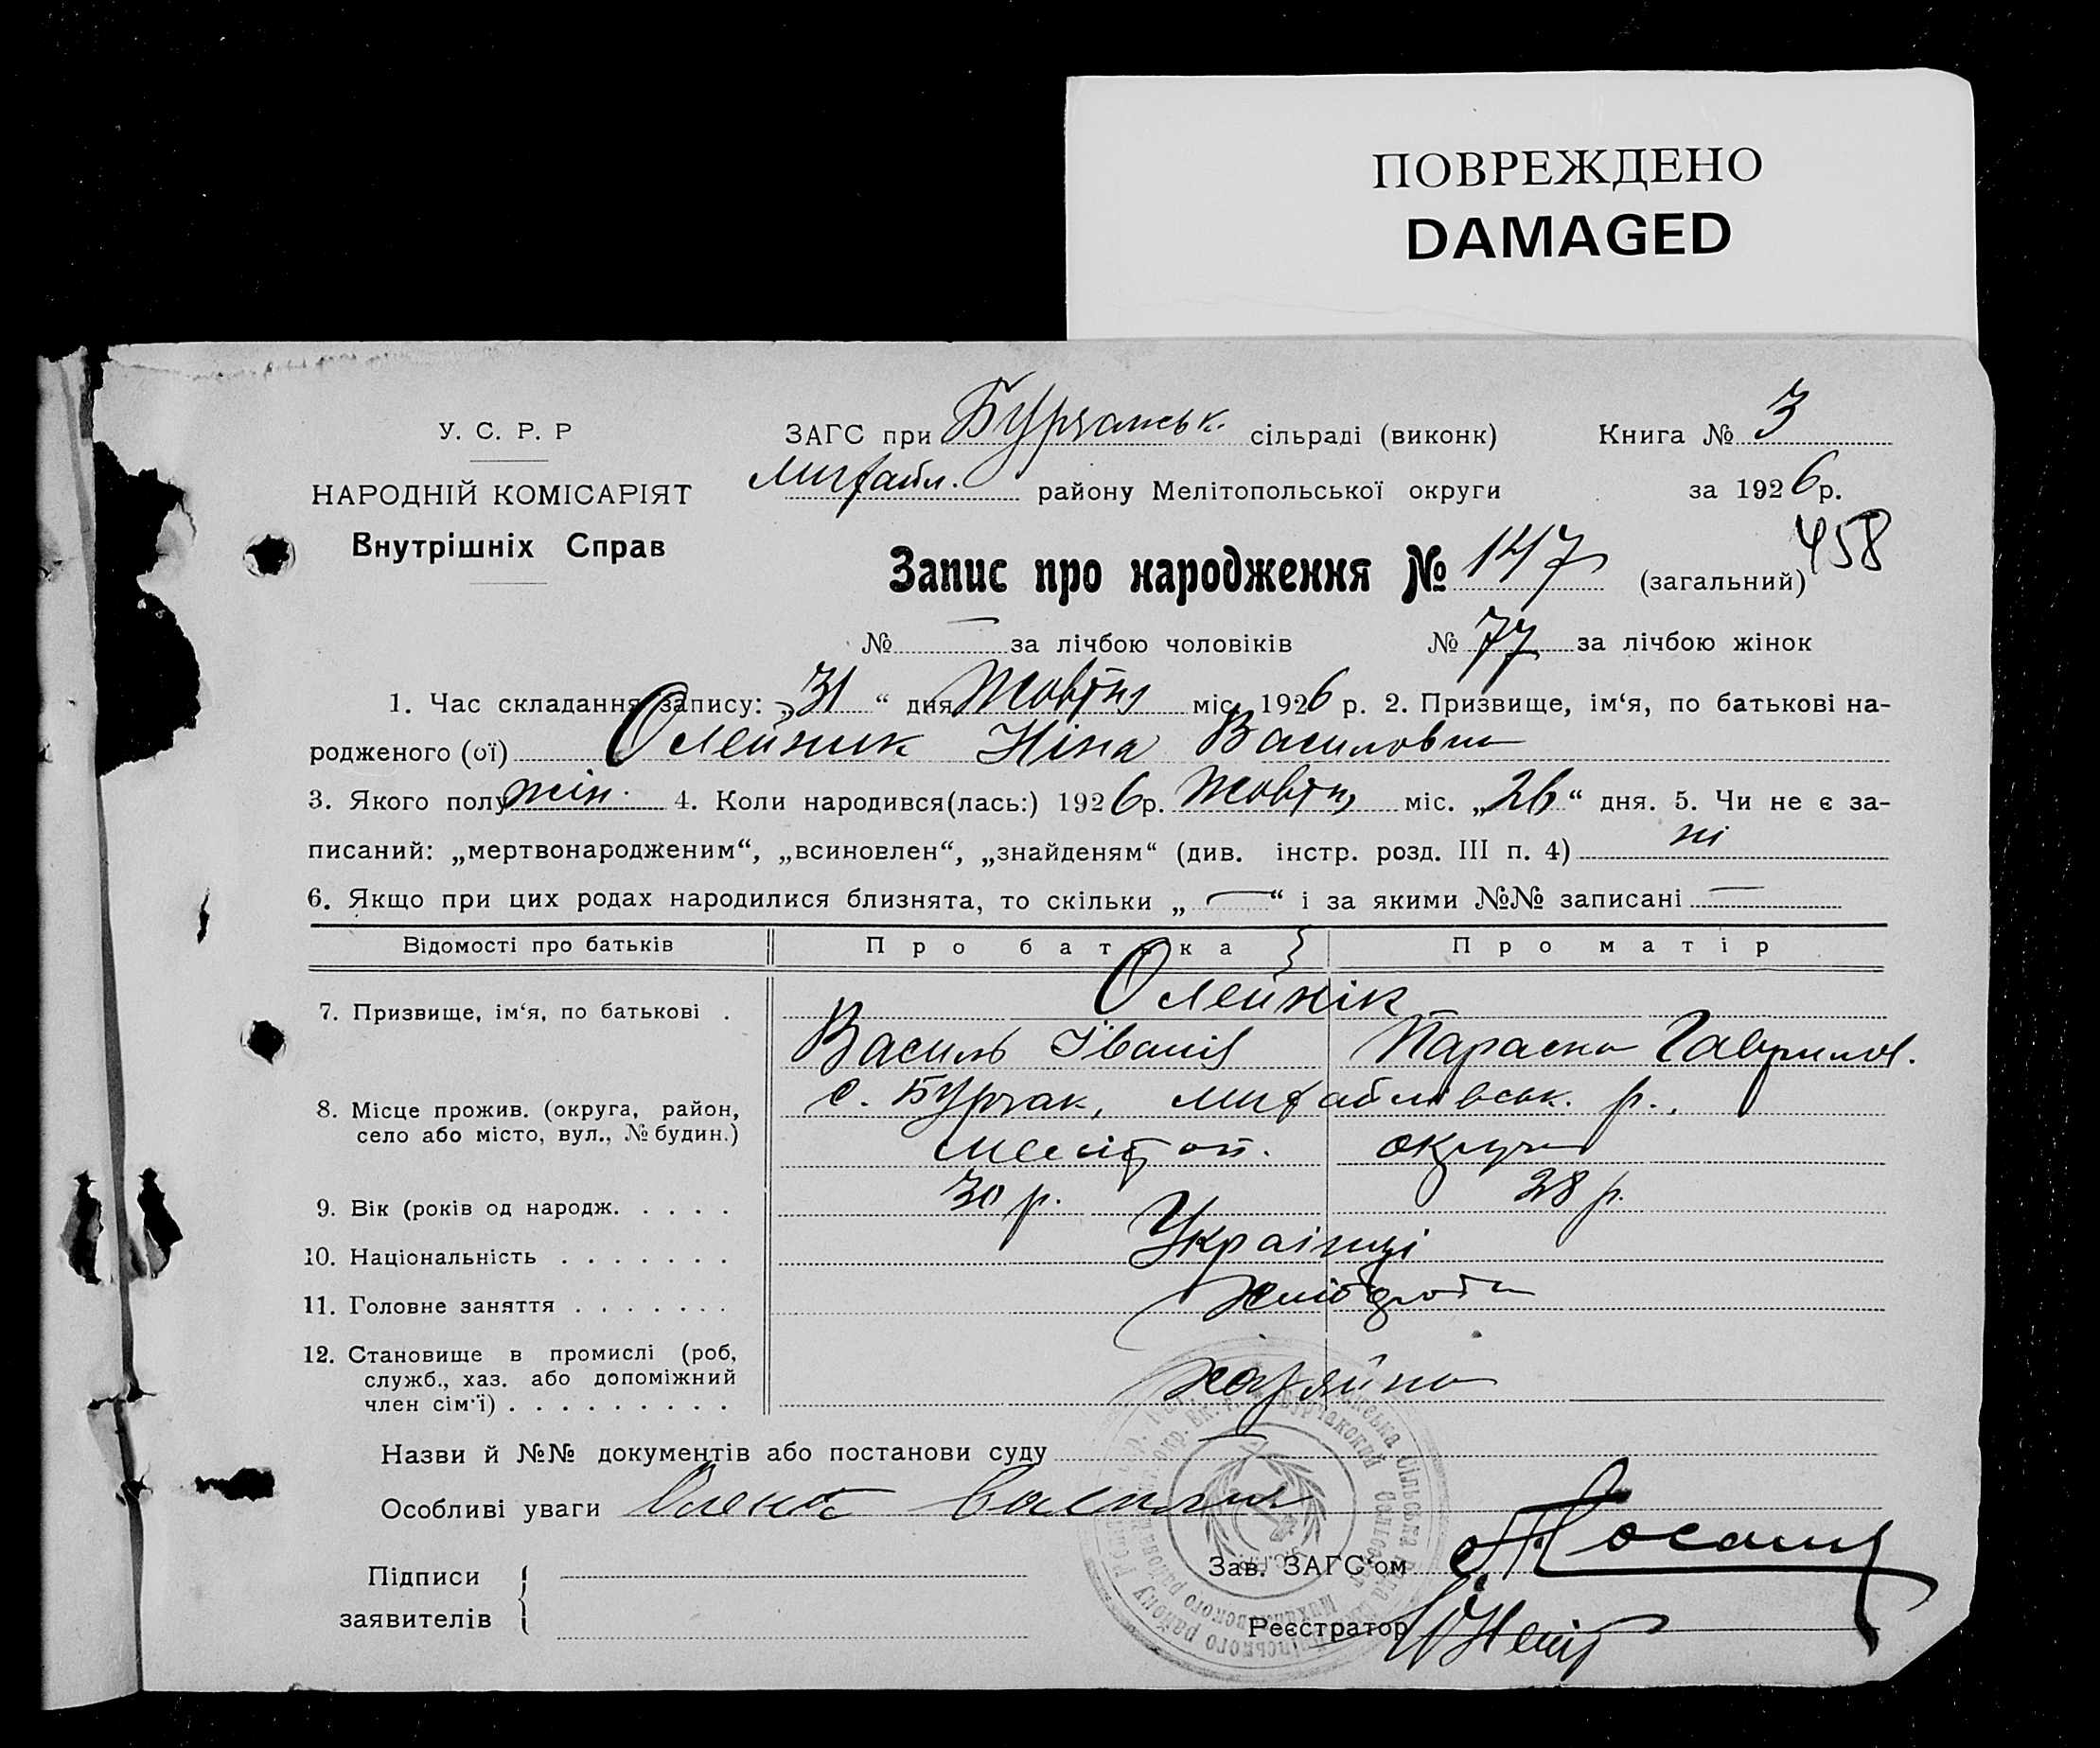 ПОВРЕЖДЕНО
DAMAGED
У. С. Р. Р
НАРОДНІЙ КОМІСАРІЯТ
Внутрішніх Справ
ЗАГС при Бурчанськ. сільраді (виконк)
Михайл. району Мелітопольської округи
Книга № 3
за 1926 р.
458
Запис про народження № 147 (загальний)
№ — за лічбою чоловіків № 77 за лічбою жінок
1. Час складання запису: „31“ дня Жовтня міс. 1926 р. 2. Призвище, ім‘я, по батькові на-
родженого (ої) Олейник Ніна Василовна
3. Якого полу жін. 4. Коли народився(лась:) 1926 р. Жовтня міс. „26“ дня. 5. Чи не є за-
писаний: „мертвонародженим“, „всиновлен“, „знайденям“ (див. інстр. розд. III п. 4) ні
6. Якщо при цих родах народилися близнята, то скільки „—“ і за якими №№ записані —
Відомості про батьків Про батька Про матір
Олейнік
7. Призвище, ім‘я, по батькові . Василь Іванів Параска Гаврилов.
8. Місце прожив. (округа, район, с. Бурчак, Михайлівськ. р.,
село або місто, вул., № будин.) Меліт оп. округи
9. Вік (років од народж. . . . . 30 р. 28 р.
10. Національність . . . . . . . Українці
11. Головне заняття . . . . . . . хлібороби
12. Становище в промислі (роб,
служб., хаз. або допоміжний
член сім‘ї) . . . . . . . . . хазяїна
Назви й №№ документів або постанови суду —
Особливі уваги
Підписи
заявителів
Зав. ЗАГС‘ом
Реєстратор